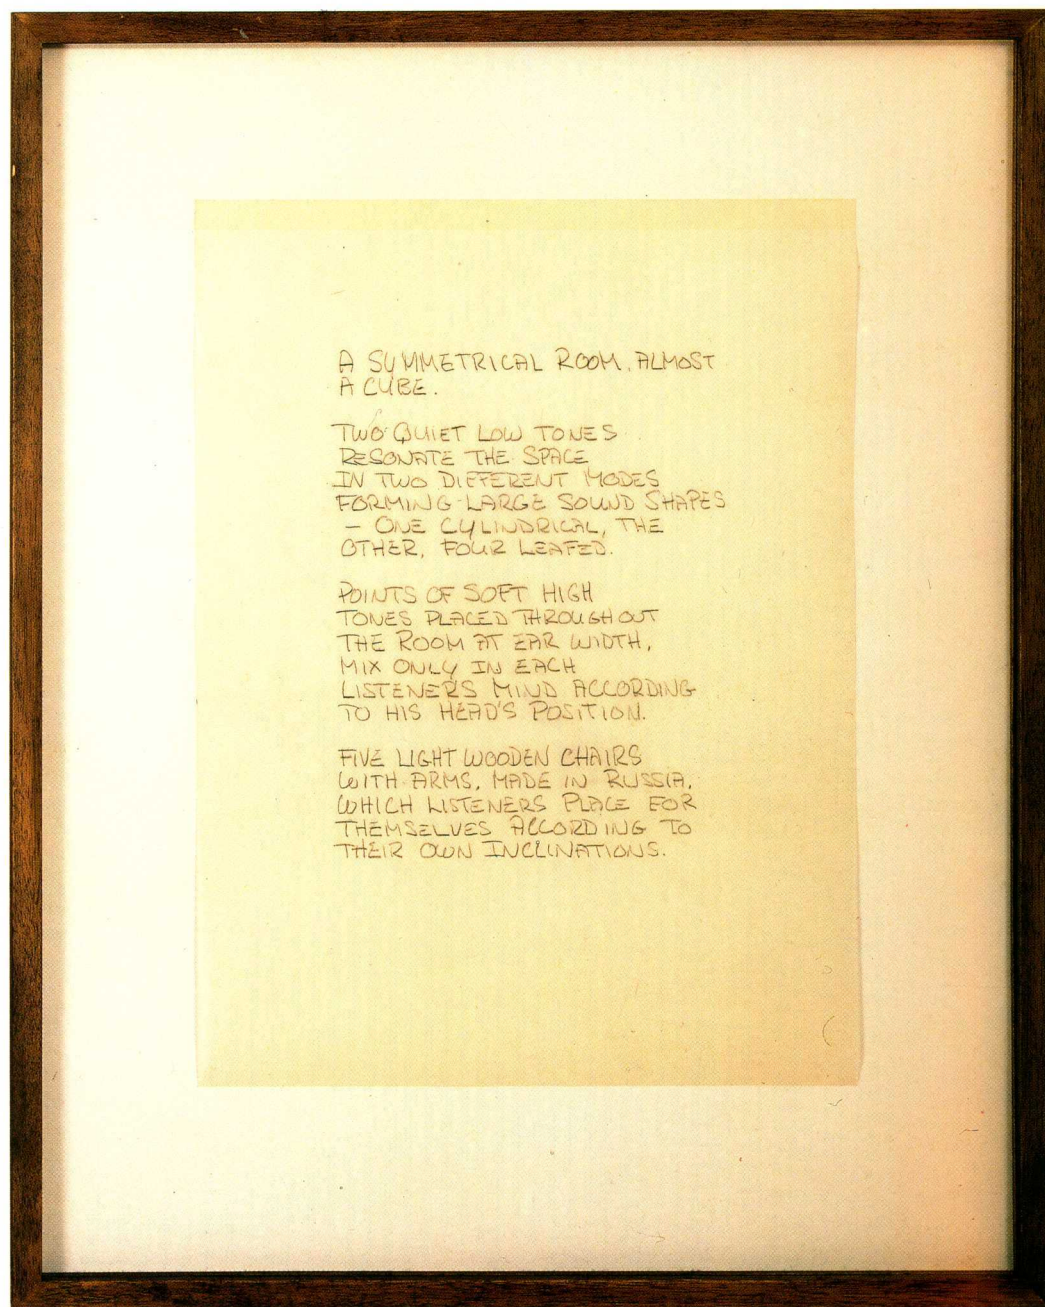 A SYMMETRICAL ROOM, ALMOST
A CUBE.
TWO QUIET LOW TONES
RESONATE THE SPACE
IN TWO DIFFERENT MODES
FORMING LARGE SOUND SHAPES
– ONE CYLINDRICAL, THE
OTHER, FOUR LEAFED.
POINTS OF SOFT HIGH
TONES PLACED THROUGHOUT
THE ROOM AT EAR WIDTH,
MIX ONLY IN EACH
LISTENER'S MIND ACCORDING
TO HIS HEAD'S POSITION.
FIVE LIGHT WOODEN CHAIRS
WITH ARMS, MADE IN RUSSIA,
WHICH LISTENERS PLACE FOR
THEMSELVES ACCORDING TO
THEIR OWN INCLINATIONS.